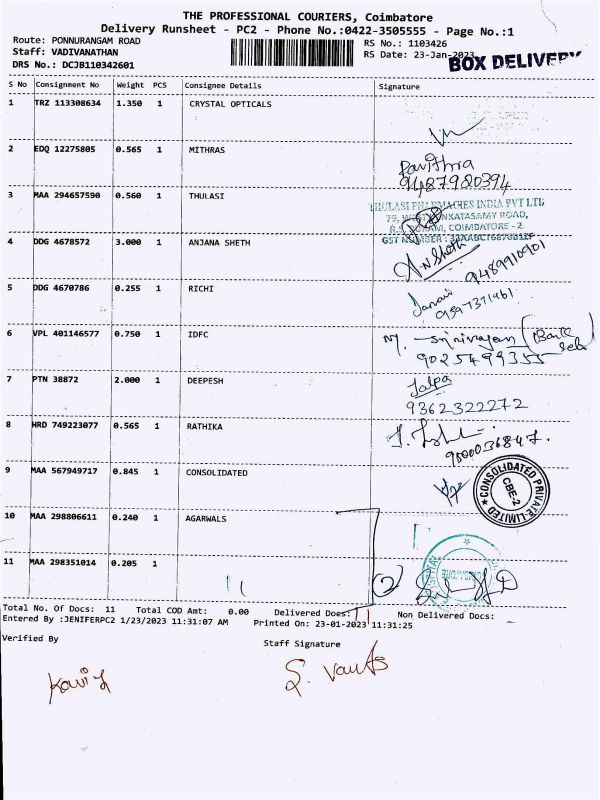 THE PROFESSIONAL COURIERS, Coimbatore
Delivery Runsheet - PC2 - Phone No.:0422-3505555 - Page No.:1
Route: PONNURANGAM ROAD
Staff: VADIVANATHAN
DRS No.: DCJB110342601
RS No.: 1103426
RS Date: 23-Jan-2023
BOX DELIVERY
S No Consignment No Weight PCS Consignee Details Signature
1 TRZ 113308634 1.350 1 CRYSTAL OPTICALS
2 EDQ 12275805 0.565 1 MITHRAS
Pavithra
9487980394
3 MAA 294657590 0.560 1 THULASI
THULASI PHARMACIES INDIA PVT LTD
79, WEST VENKATASAMY ROAD,
R.S. PURAM, COIMBATORE - 2.
GST NUMBER :
4 DDG 4678572 3.000 1 ANJANA SHETH
9489910901
5 DDG 4670786 0.255 1 RICHI
6 VPL 401146577 0.750 1 IDFC
M. Srinivasan
9025499355
7 PTN 38872 2.000 1 DEEPESH
Jalpa
9362322272
8 HRD 749223077 0.565 1 RATHIKA
9500036847.
9 MAA 567949717 0.845 1 CONSOLIDATED
CONSOLIDATED PRIVATE LIMITED
CBE-2
10 MAA 298806611 0.240 1 AGARWALS
11 MAA 298351014 0.205 1
11
2
Total No. Of Docs: 11 Total COD Amt: 0.00 Delivered Docs: 11 Non Delivered Docs:
Entered By :JENIFERPC2 1/23/2023 11:31:07 AM Printed On: 23-01-2023 11:31:25
Verified By Staff Signature